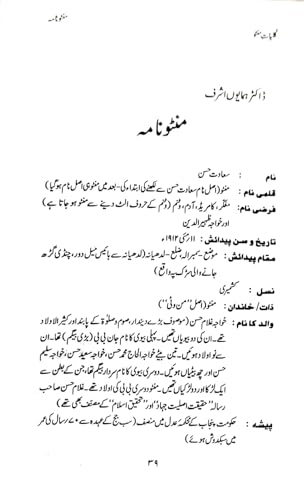 کلیات منٹو
منٹو نامہ
ڈاکٹر ہمایوں اشرف
منٹو نامہ
نام : سعادت حسن
قلمی نام : منٹو (اصل نام سعادت حسن سے لکھنے کی ابتداء کی۔ بعد میں منٹو ہی اصل نام ہو گیا)
فرضی نام: مفکر، کامریڈ، آدم، وٹنم (وٹنم کے حروف الٹ دینے سے منٹو ہو جاتا ہے)
اور خواجہ ظہیر الدین
تاریخ و سن پیدائش : ۱۱ مئی ۱۹۱۲ء
مقام پیدائش : موضع۔ سمبرالہ، ضلع۔ لدھیانہ (لدھیانہ سے بائیس میل دور، چنڈی گڑھ
جانے والی سڑک پہ واقع)
نسل : کشمیری
ذات/ خاندان : منٹو (اصل "من وٹی")
والد کا نام : خواجہ غلام حسن (موصوف بڑے دیندار، صوم و صلوٰۃ کے پابند اور کثیر الاولاد
تھے۔ ان کی دو بیویاں تھیں۔ پہلی بیوی کا نام جان بی بی (بڑی بیگم) تھا۔ ان
سے نو اولاد ہوئیں۔ تین بیٹے خواجہ الحاج محمد حسن، خواجہ سعید حسن، خواجہ سلیم
حسن اور چھ بیٹیاں ہوئیں۔ دوسری بیوی کا نام سردار بیگم تھا، جن کے بطن سے
ایک لڑکا اور دو لڑکیاں تھیں۔ منٹو دوسری بی بی کی اولاد تھے۔ غلام حسن صاحب
رسالہ "حقیقت اصلیت جہاد" اور "تحقیق اسلام" کے مصنف بھی تھے)
پیشہ : حکومت پنجاب کے محکمہ عدل میں منصف (سب جج کے عہدہ سے ۷۰ رسال کی عمر
میں سبکدوش ہوئے)
۳۹